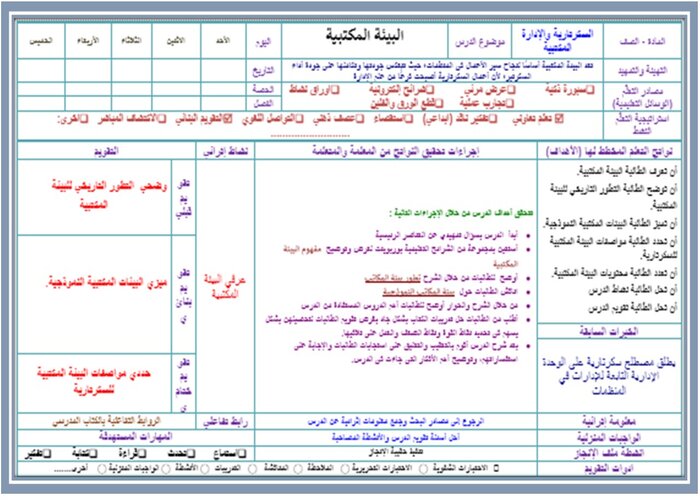 المادة - الصف
السكرتارية والإدارة المكتبية
موضوع الدرس
البيئة المكتبية
اليوم
الأحد
الاثنين
الثلاثاء
الأربعاء
الخميس
التهيئة والتمهيد
تعد البيئة المكتبية أساسًا لنجاح سير الأعمال في المنظمات، حيث تنعكس جودتها وكفاءتها على جودة أداء
السكرتير، لأن أعمال السكرتارية أصبحت فرعًا من علم الإدارة
التاريخ
مصادر التعلم
(الوسائل التعليمية)
سبورة ذكية
عرض مرئي
شرائح إلكترونية
أوراق نشاط
تجارب عملية
قطع الورق والفلين
الحصة
الفصل
استراتيجية التعلم النشط
تعلم تعاوني
تفكير ناقد (إبداعي)
استقصاء
عصف ذهني
التواصل اللغوي
التقويم البنائي
الاكتشاف المباشر
أخرى:
نواتج التعلم المخطط لها (الأهداف)
إجراءات تحقيق النواتج من المعلمة والمتعلمة
نشاط إثرائي
التقويد
أن تعرف الطالبة البيئة المكتبية.
أن توضح الطالبة التطور التاريخي للبيئة
المكتبية.
أن تميز الطالبة البيئات المكتبية النموذجية.
أن تحدد الطالبة مواصفات البيئة المكتبية
للسكرتارية.
أن تعدد الطالبة محتويات البيئة المكتبية.
أن تحل الطالبة نشاط الدرس
أن تحل الطالبة تقويم الدرس
الخبرات السابقة
يطلق مصطلح سكرتارية على الوحدة
الإدارية التابعة للإدارات في
المنظمات
تتحقق أهداف الدرس من خلال الإجراءات التالية :
أبدأ الدرس بسؤال تمهيدي عن العناصر الرئيسية
أستعين بمجموعة من الشرائح التعليمية بوربوينت لعرض وتوضيح مفهوم البيئة
المكتبية
أوضح للطالبات من خلال الشرح تطور بيئة المكاتب
أناقش الطالبات حول بيئة المكاتب النموذجية
من خلال الشرح والحوار أوضح للطالبات أهم الدروس المستفادة من الدرس
أطلب من الطالبات حل تدريبات الكتاب بشكل جاد بغرض تقويم الطالبات لتحصيلهن بشكل
يسهم في تحديد نقاط القوة ونقاط الضعف والعمل على تلافيها.
بعد شرح الدرس أقوم بالتعقيب والتعليق على استجابات الطالبات والإجابة على
استفساراتهم، وتوضيح أهم الأفكار التي جاءت في الدرس.
عرفي البيئة
المكتبية
تقو
يد
قبلي
وضحي التطور التاريخي للبيئة
المكتبية
تقو
يد
بنائ
ي
ميزي البيئات المكتبية النموذجية.
تقو
يد
ختام
ي
حددي مواصفات البيئة المكتبية
للسكرتارية
معلومة اثرائية
الرجوع إلى مصادر البحث وجمع معلومات إثرائية عن الدرس
رابط تفاعلي
الروابط التفاعلية بالكتاب المدرسي
الواجبات المنزلية
أحل أسئلة تقويم الدرس والأنشطة المصاحبة
المهارات المستهدفة
أنشطة ملف الإنجاز
حقيبة الإنجاز
استماع
تحدث
قراءة
كتابة
تفكير
ادوات التقويد
الاختبارات الشفوية
الاختبارات التحريرية
الملاحظة
المناقشة
التدريبات
الأنشطة
الواجبات المنزلية
أخرى.......